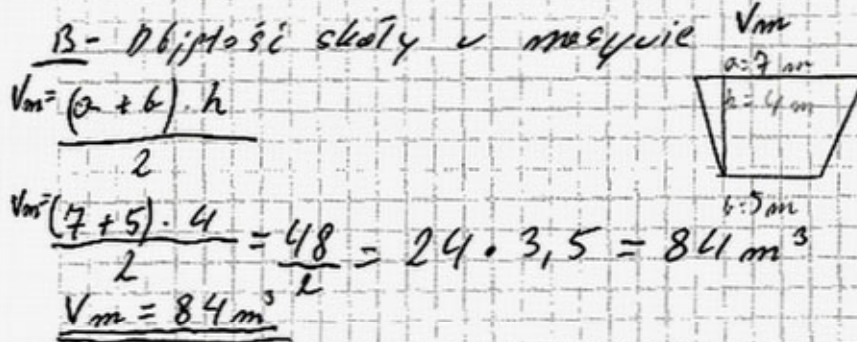 B - Objętość skały w masywie Vm
a=7 m
Vm= (a + b) . h
2
h=4 m
b=5 m
Vm= (7 + 5) . 4 / 2 = 48 / 2 = 24 . 3,5 = 84 m³
Vm = 84 m³